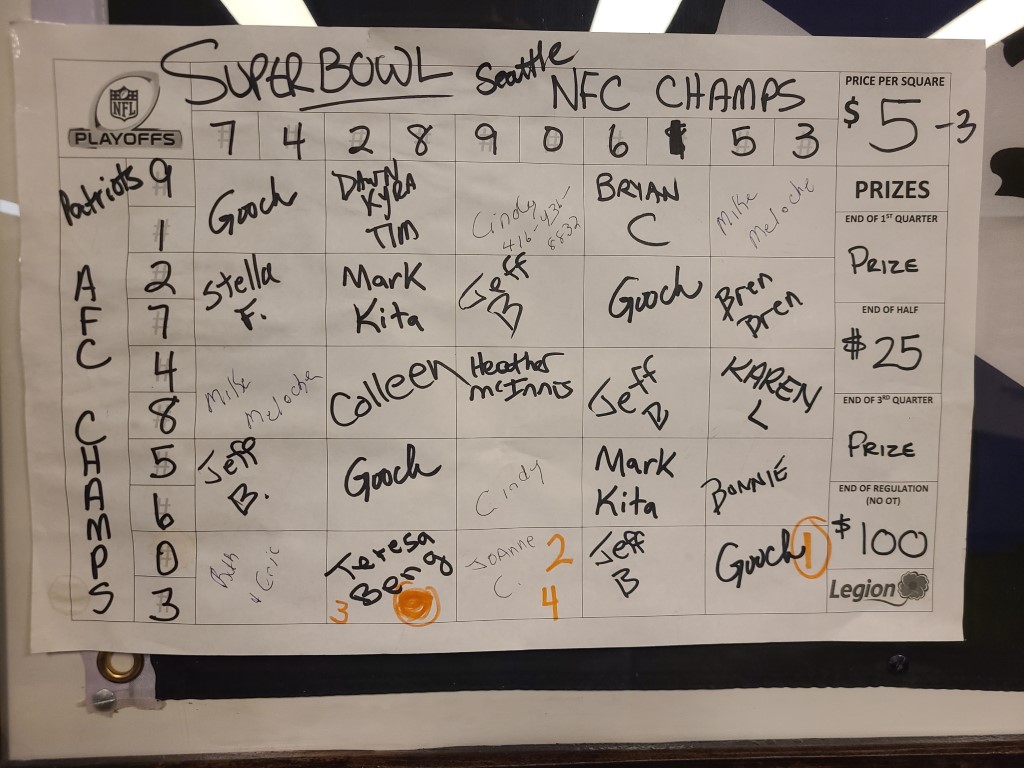 SUPERBOWL Seattle
NFC CHAMPS
NFL
PLAYOFFS
7 4 2 8 9 0 6 1 5 3
PRICE PER SQUARE
$5 -3
Patriots
AFC CHAMPS
9
1
Gooch
DAWN
KYRA
TIM
Cindy
416-436-
8832
BRYAN
C
Mike
Meloche
2
7
Stella
F.
Mark
Kita
Jeff
B
Gooch
Bren
Dren
4
8
Mike
Meloche
Colleen
Heather
McInnis
Jeff
B
KAREN
L
5
6
Jeff
B.
Gooch
Cindy
Mark
Kita
BONNIE
0
3
Beth
+ Eric
Teresa
Berg
3
JoAnne
C.
2
4
Jeff
B
Gooch 1
PRIZES
END OF 1ST QUARTER
PRIZE
END OF HALF
$25
END OF 3RD QUARTER
PRIZE
END OF REGULATION
(NO OT)
$100
Legion